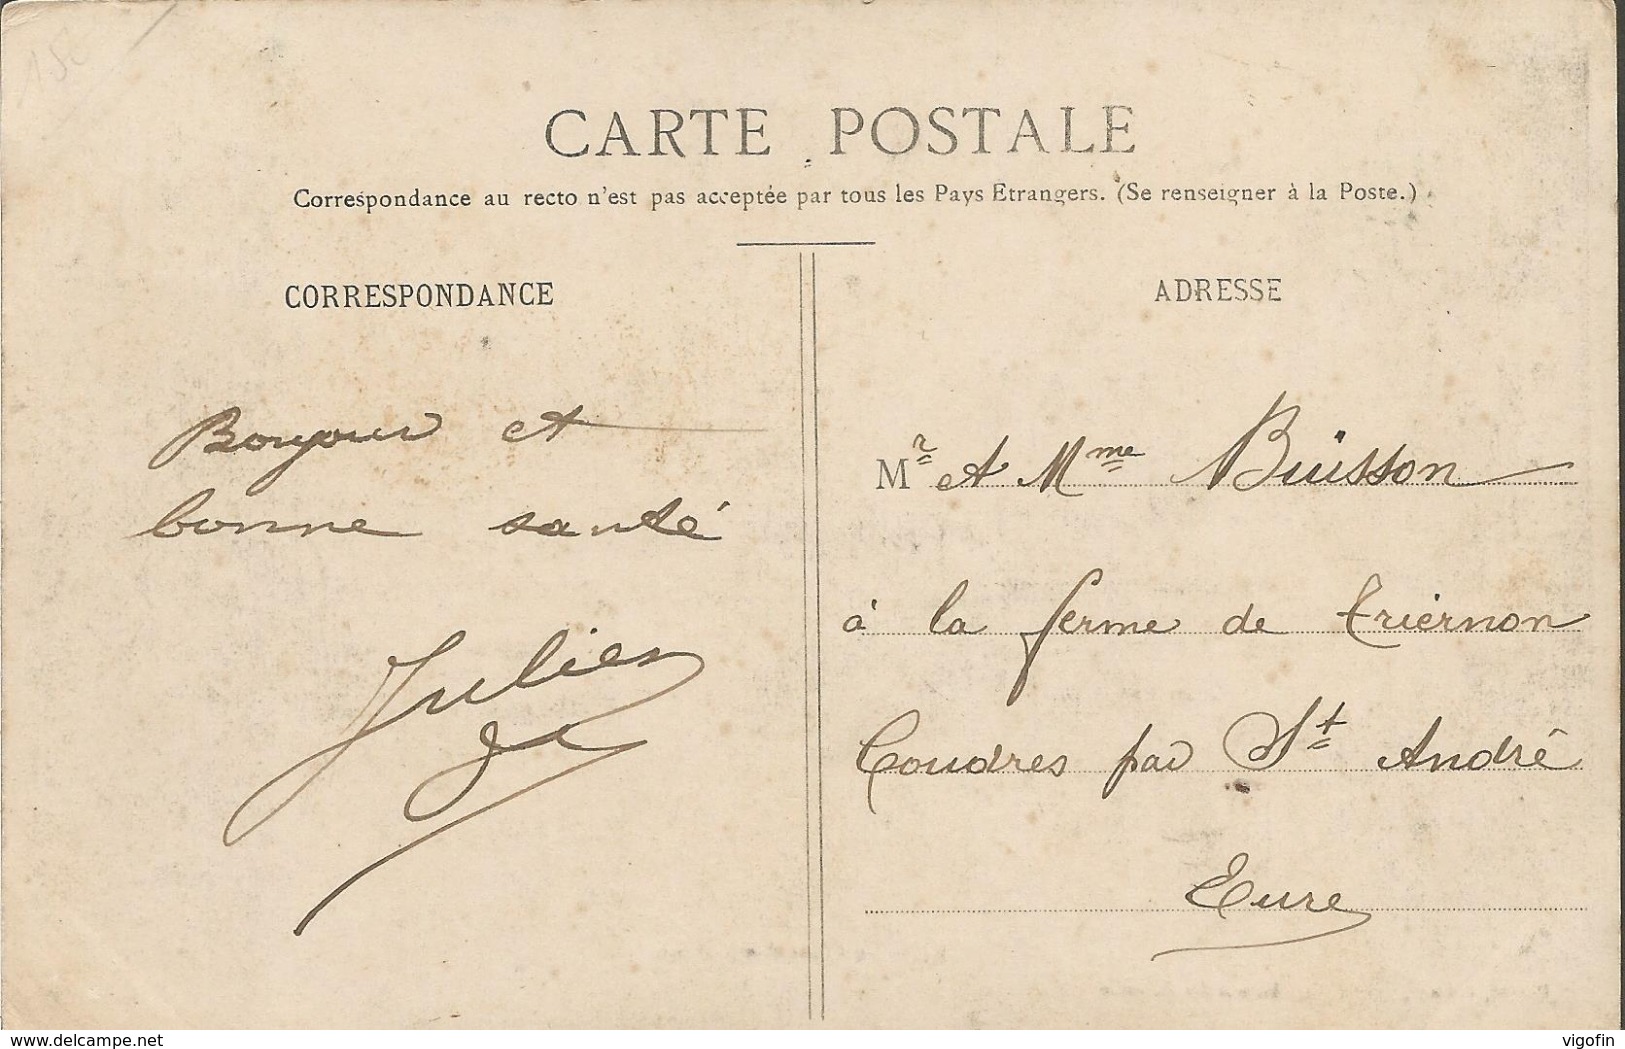 CARTE POSTALE
Correspondance au recto n'est pas acceptée par tous les Pays Etrangers. (Se renseigner à la Poste.)
CORRESPONDANCE
ADRESSE
Bonjour et
bonne santé
Julien
Mr et Mme Buisson
à la ferme de Triernon
Coudres par St André
Eure
www.delcampe.net
vigofin